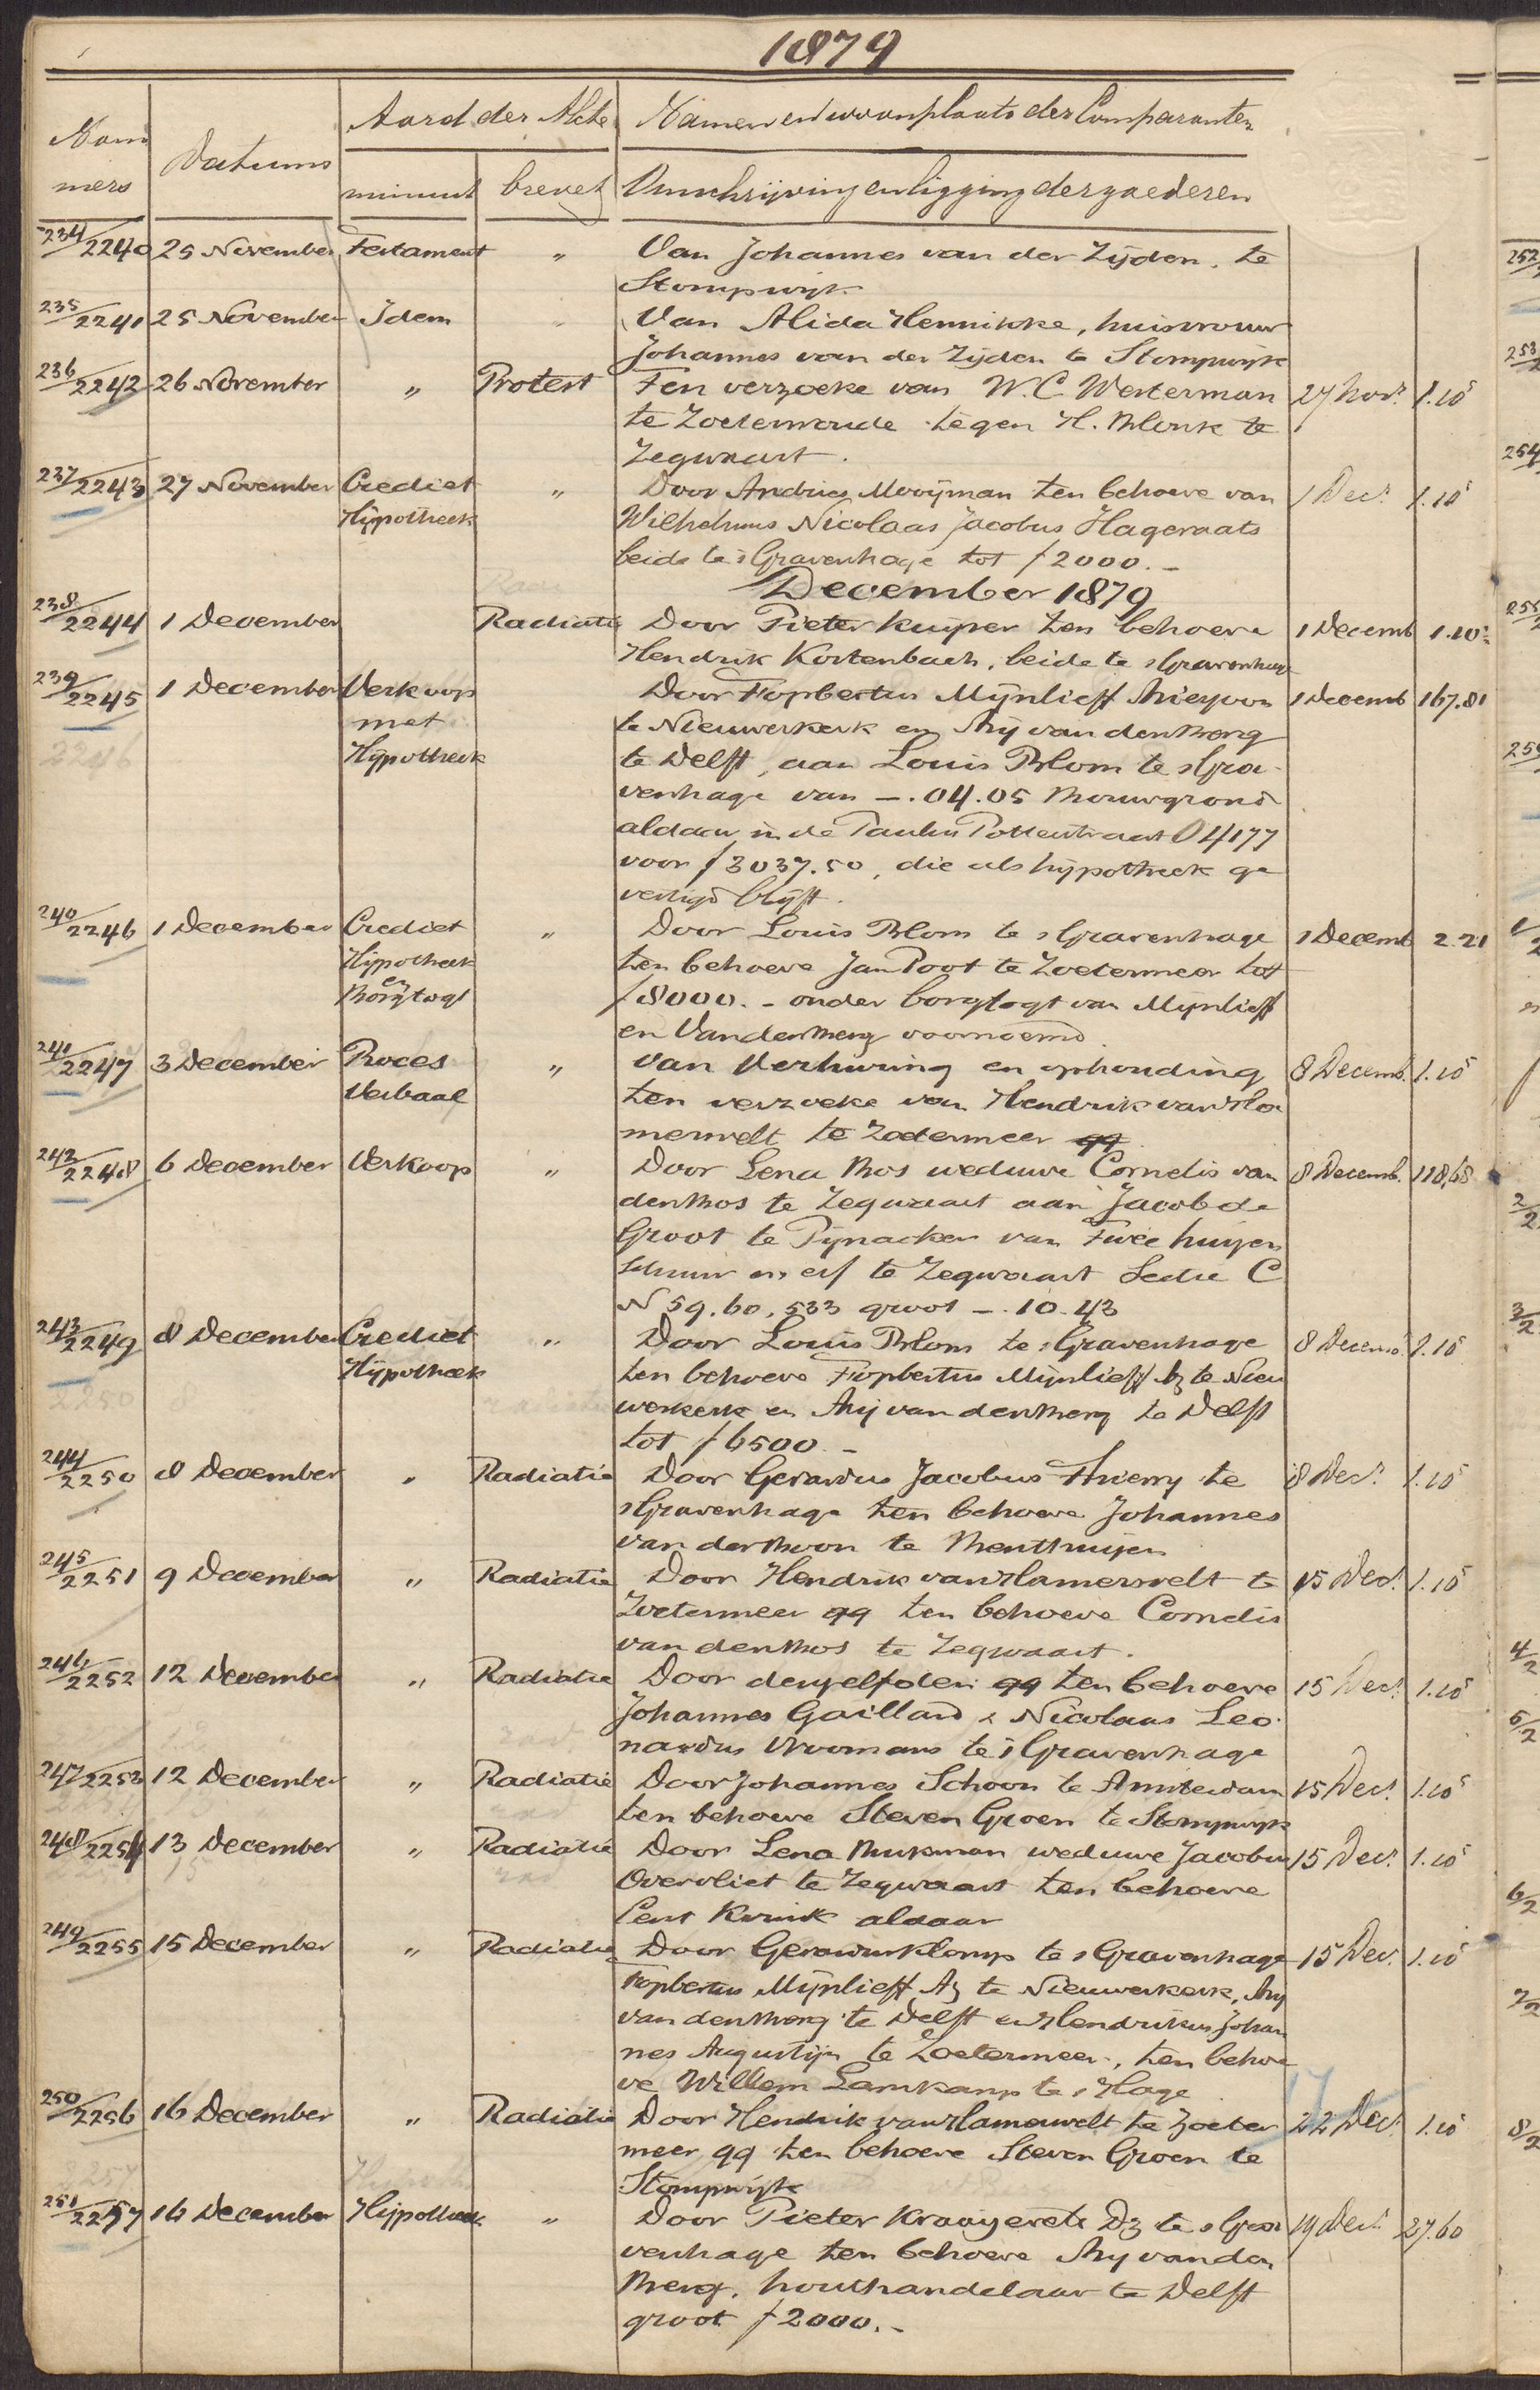 1879
Nom Datums Aard der Akte Namen en woonplaats der Comparanten
mers minuut brevet Omschrijving en ligging der goederen
234/2240 25 November Testament " Van Johannes van der Zijden, te
Stompwijk
235/2241 25 November Idem " Van Alida Hennikke, huisvrouw
Johannes van der Zijden te Stompwijk
236/2242 26 November " Protest Ten verzoeke van W. C. Westerman 27 Nov. 1.10⁵
te Zoeterwoude tegen H. Blonk te
Zegwaart.
237/2243 27 November Crediet " Door Andries Mooijman ten behoeve van 1 Dec. 1.10⁵
Hijpotheek Wilhelmus Nicolaas Jacobus Hageraats
beide te 's Gravenhage tot ƒ 2000.-
December 1879
238/2244 1 December Radiatie Door Pieter Kuijper ten behoeve 1 Decemb 1.10⁵
Hendrik Kortenbach, beide te 's Gravenhage
239/2245 1 December Verkoop Door Fopbertus Mijnlieff 1 Decemb 167.81
met te Nieuwerkerk en Arij van den Berg
2246 Hijpotheek te Delft, aan Louis Blom te 's Gra-
venhage van -.04.05 Bouwgrond
aldaar in de Paulus Potterstraat O 4177
voor ƒ 3037.50, die als hijpotheek ge
vestigd blijft.
240/2246 1 December Crediet " Door Louis Blom te 's Gravenhage 1 Decemb 2.21
Hijpotheek ten behoeve Jan Poot te Zoetermeer tot
en
Borgtogt ƒ 8000.- onder borgtogt van Mijnlieff
en Van den Berg voornoemd
241/2247 3 December Proces " van Verhuring en ophouding 8 Decemb. 1.10⁵
Verbaal ten verzoeke van Hendrik van Ha
merwelt te Zoetermeer qq
242/2248 6 December Verkoop " Door Lena Bos weduwe Cornelis van 8 Decemb. 118,68
den Bos te Zegwaart aan Jacob de
Groot te Pijnacker van Twee huizen
schuur en erf te Zegwaart Sectie C
N 59.60.533 groot -.10.43
243/2249 8 December Crediet " Door Louis Blom te 's Gravenhage 8 Decemb. 1.10⁵
Hijpotheek ten behoeve Fopbertus Mijnlieff Az te Nieu
2250 werkerk en Arij van den Berg te Delft
tot ƒ 6500.-
244/2250 8 December " Radiatie Door Gerardus Jacobus Thierry te 8 Dec. 1.10⁵
's Gravenhage ten behoeve Johannes
van der Boon te Benthuijzen
245/2251 9 December " Radiatie Door Hendrik van Hamerwelt te 15 Dec. 1.10⁵
Zoetermeer qq ten behoeve Cornelis
van den Bos te Zegwaart.
246/2252 12 December " Radiatie Door denzelfden qq ten behoeve 15 Dec. 1.10⁵
Johannes Gaillard & Nicolaas Leo-
nardus Vroomans te 's Gravenhage
247/2253 12 December " Radiatie Door Johannes Schoon te Amsterdam 15 Dec. 1.10⁵
ten behoeve Steven Groen te Stompwijk
248/2254 13 December " Radiatie Door Lena Bukman weduwe Jacobus 15 Dec. 1.10⁵
Overvliet te Zegwaart ten behoeve
aldaar
249/2255 15 December " Radiatie Door te 's Gravenhage 15 Dec. 1.10⁵
Fopbertus Mijnlieff Az te Nieuwerkerk, Arij
van den Berg te Delft en Hendrikus Johan
nes Augustijn te Zoetermeer, ten behoe
ve Willem Lamkamp te 's Hage 17
250/2256 16 December " Radiatie Door Hendrik van Hamerwelt te Zoeter 22 Dec. 1.10⁵
meer qq ten behoeve Steven Groen te
Stompwijk
251/2257 16 December Hijpotheek " Door Pieter Dz te 's Gra 19 Dec. 27.60
venhage ten behoeve Arij van den
Berg, houthandelaar te Delft
groot ƒ 2000.-